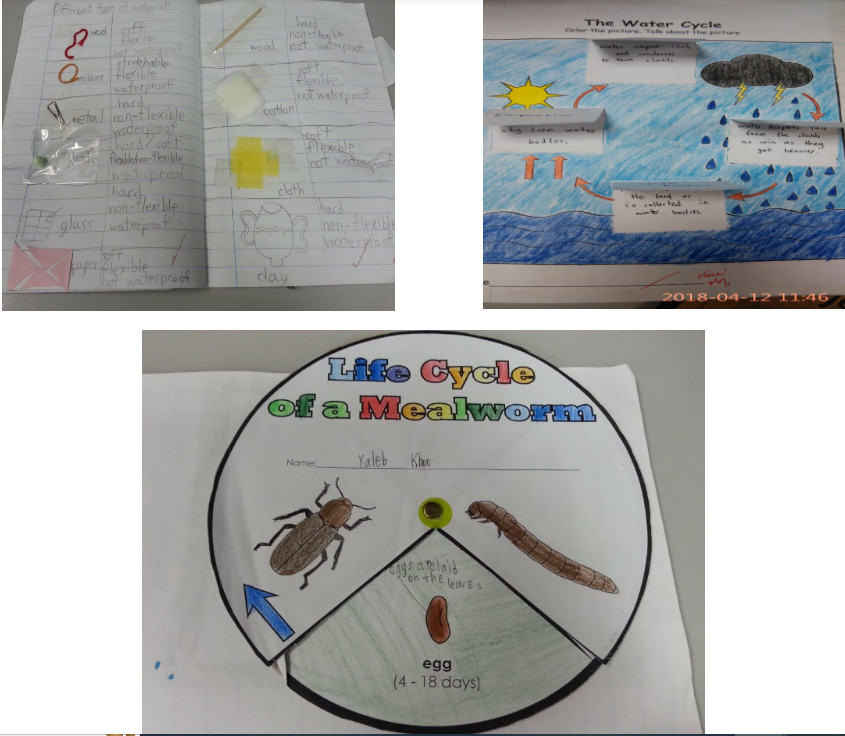 Different type of materials
wool
soft
flexible
not waterproof
rubber
stretchable
flexible
waterproof
metal
hard
non-flexible
waterproof
hard/soft
flexible/non-flexible
waterproof
glass
hard
non-flexible
waterproof
paper
soft
flexible
not waterproof
wood
hard
non-flexible
not waterproof
cotton
soft
flexible
not waterproof
cloth
soft
flexible
not waterproof
clay
hard
non-flexible
waterproof
The Water Cycle
Color the picture. Talk about the picture
water vapour
and condenses
to form clouds.
from water
bodies.
water droplets fall
from the clouds
as soon as they
get heavier.
the land or
is collected in
water bodies.
2018-04-12 11:46
Life Cycle
of a Mealworm
Name: Kaleb Khoo
eggs are laid
on the leaves
egg
(4 - 18 days)